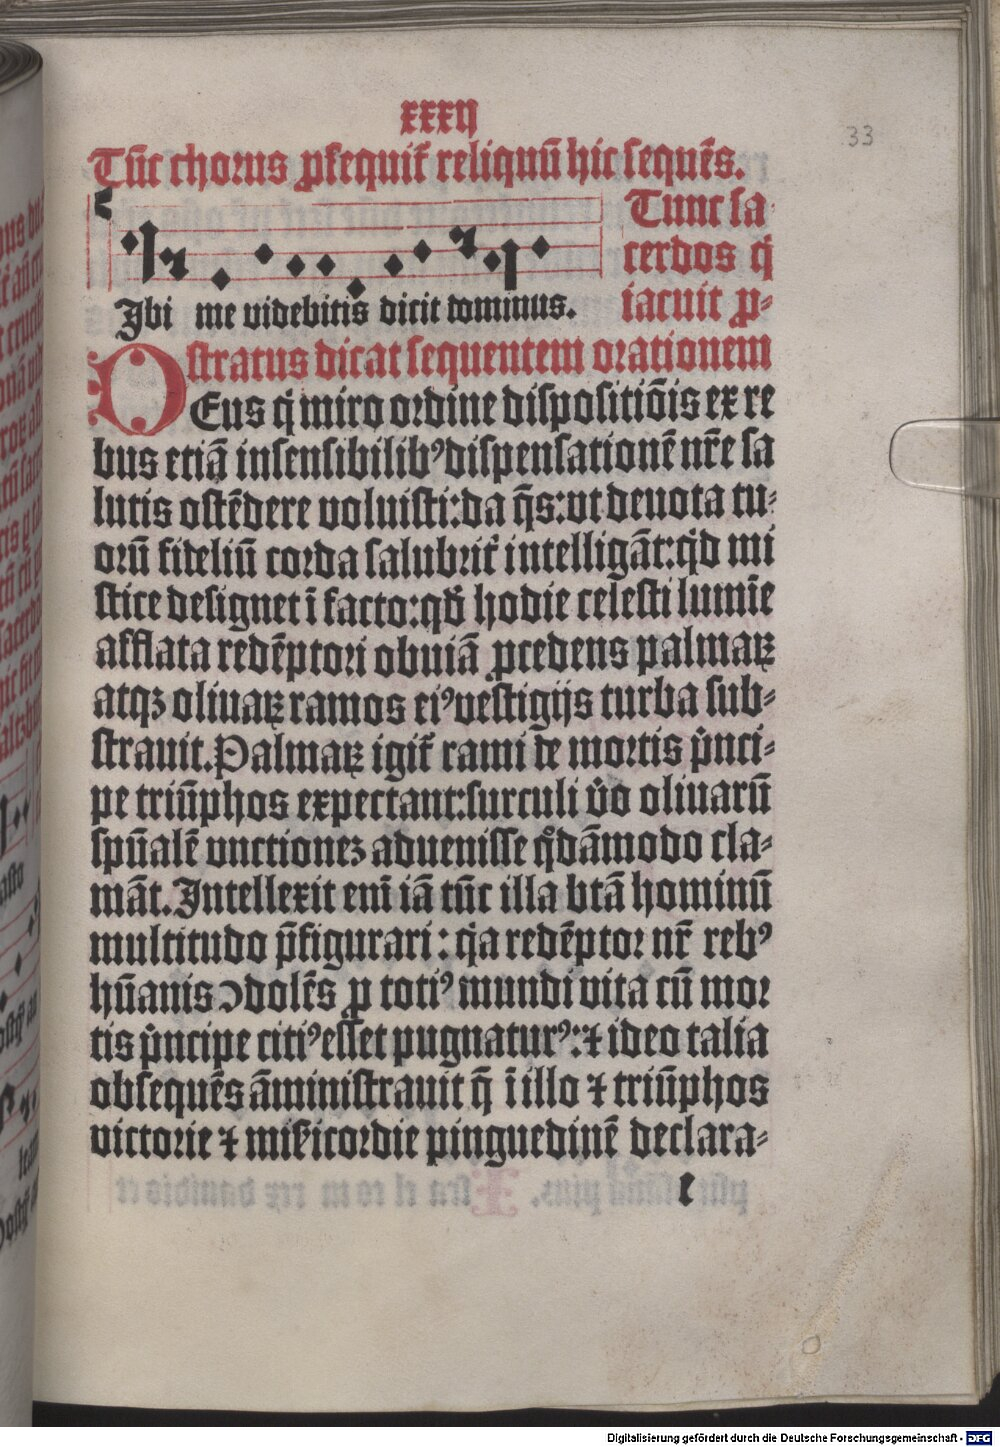 xxxij
33
Tūc chorus ꝓsequit᷑ reliquū hic sequēs.
Ibi me videbitis dicit dominus.
Tunc sa-
cerdos q̇
iacuit ꝓ-
stratus dicat sequentem orationem
DEus q̇ miro ordine dispositiōis ex re
bus etiā insensibilibꝰ dispensationē nr̄e sa
lutis ostēdere voluisti: da q̄s: vt deuota tu-
orū fideliū corda salubrit᷑ intelligāt: qd̓ mi
stice designet ī facto: qđ hodie celesti lumīe
afflata redēptori obuiā ꝓcedens palmaꝝ
atqꝫ oliuaꝝ ramos eiꝰ vestigijs turba sub-
strauit. Palmaꝝ igit᷑ rami de mortis p̓nci-
pe triūphos expectant: surculi v̓o oliuarū
spūalē vnctionez aduenisse qͦdāmodo cla-
māt. Intellexit eni᷑ iā tūc illa btā hominū
multitudo p̄figurari: qꝛa redēptor nr̄ rebꝰ
hūanis ↄdolēs ꝓ totiꝰ mundi vita cū mor
tis p̓ncipe citiꝰ esset pugnaturꝰ: ⁊ ideo talia
obsequēs āministrauit q̄ ī illo ⁊ triūphos
victorie ⁊ mis̄icordie pinguedinē declara-
e
Digitalisierung gefördert durch die Deutsche Forschungsgemeinschaft - DFG